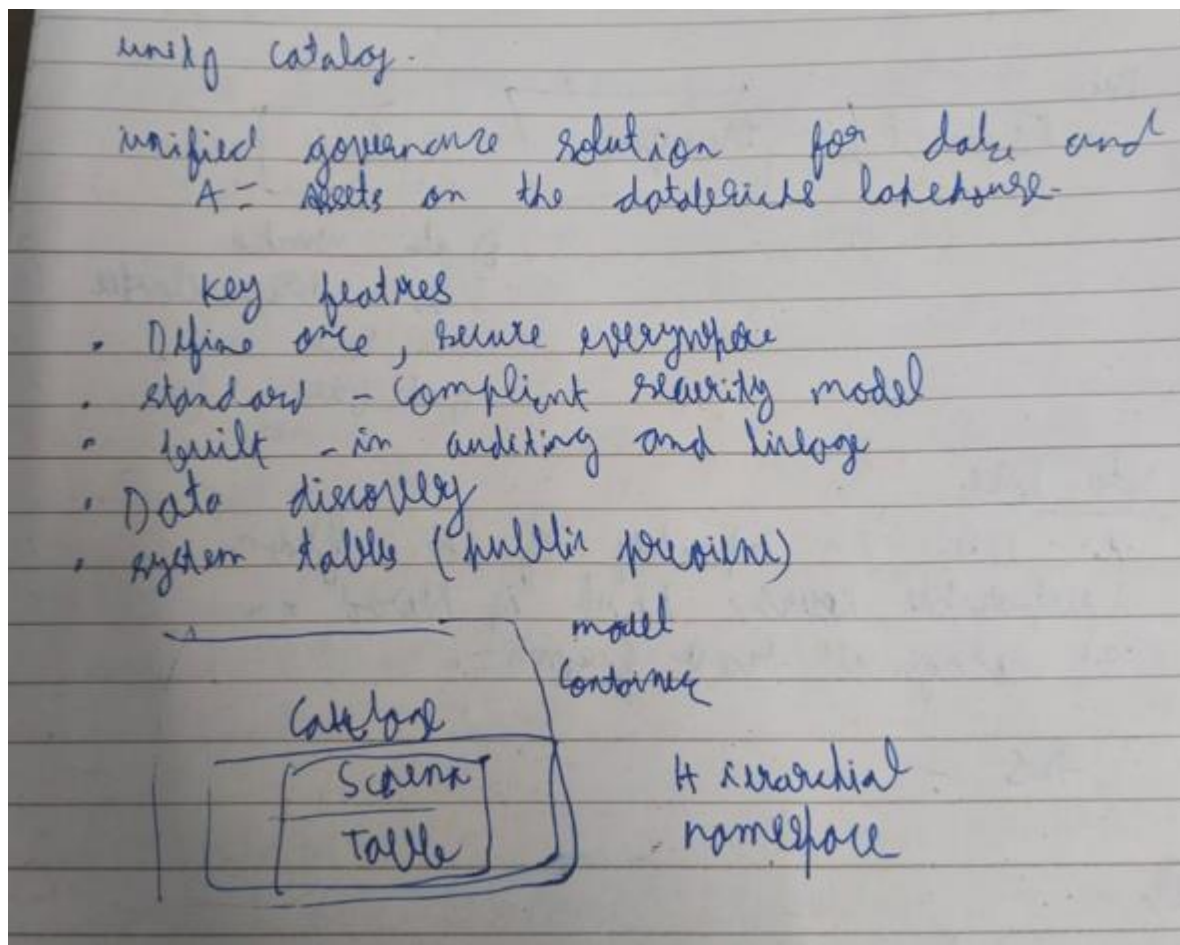 unity catalog.
unified governance solution for data and
A = assets on the databricks lakehouse.
key features
. Define once, secure everywhere
. standard - complient security model
. built - in auditing and lineage
. Data discovery
. system tables (public preview)
model
container
Cataloge
Schema
Table
Hierarchial
namespace